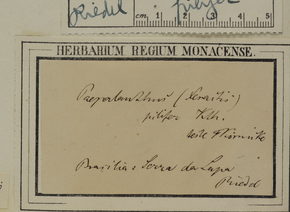 Riedel pilifer
cm. 1 2 3 4 5
HERBARIUM REGIUM MONACENSE.
Paepalanthus (
pilifer Kth.
teste Körnicke
Brasilia: Serra da Lapa
Riedel